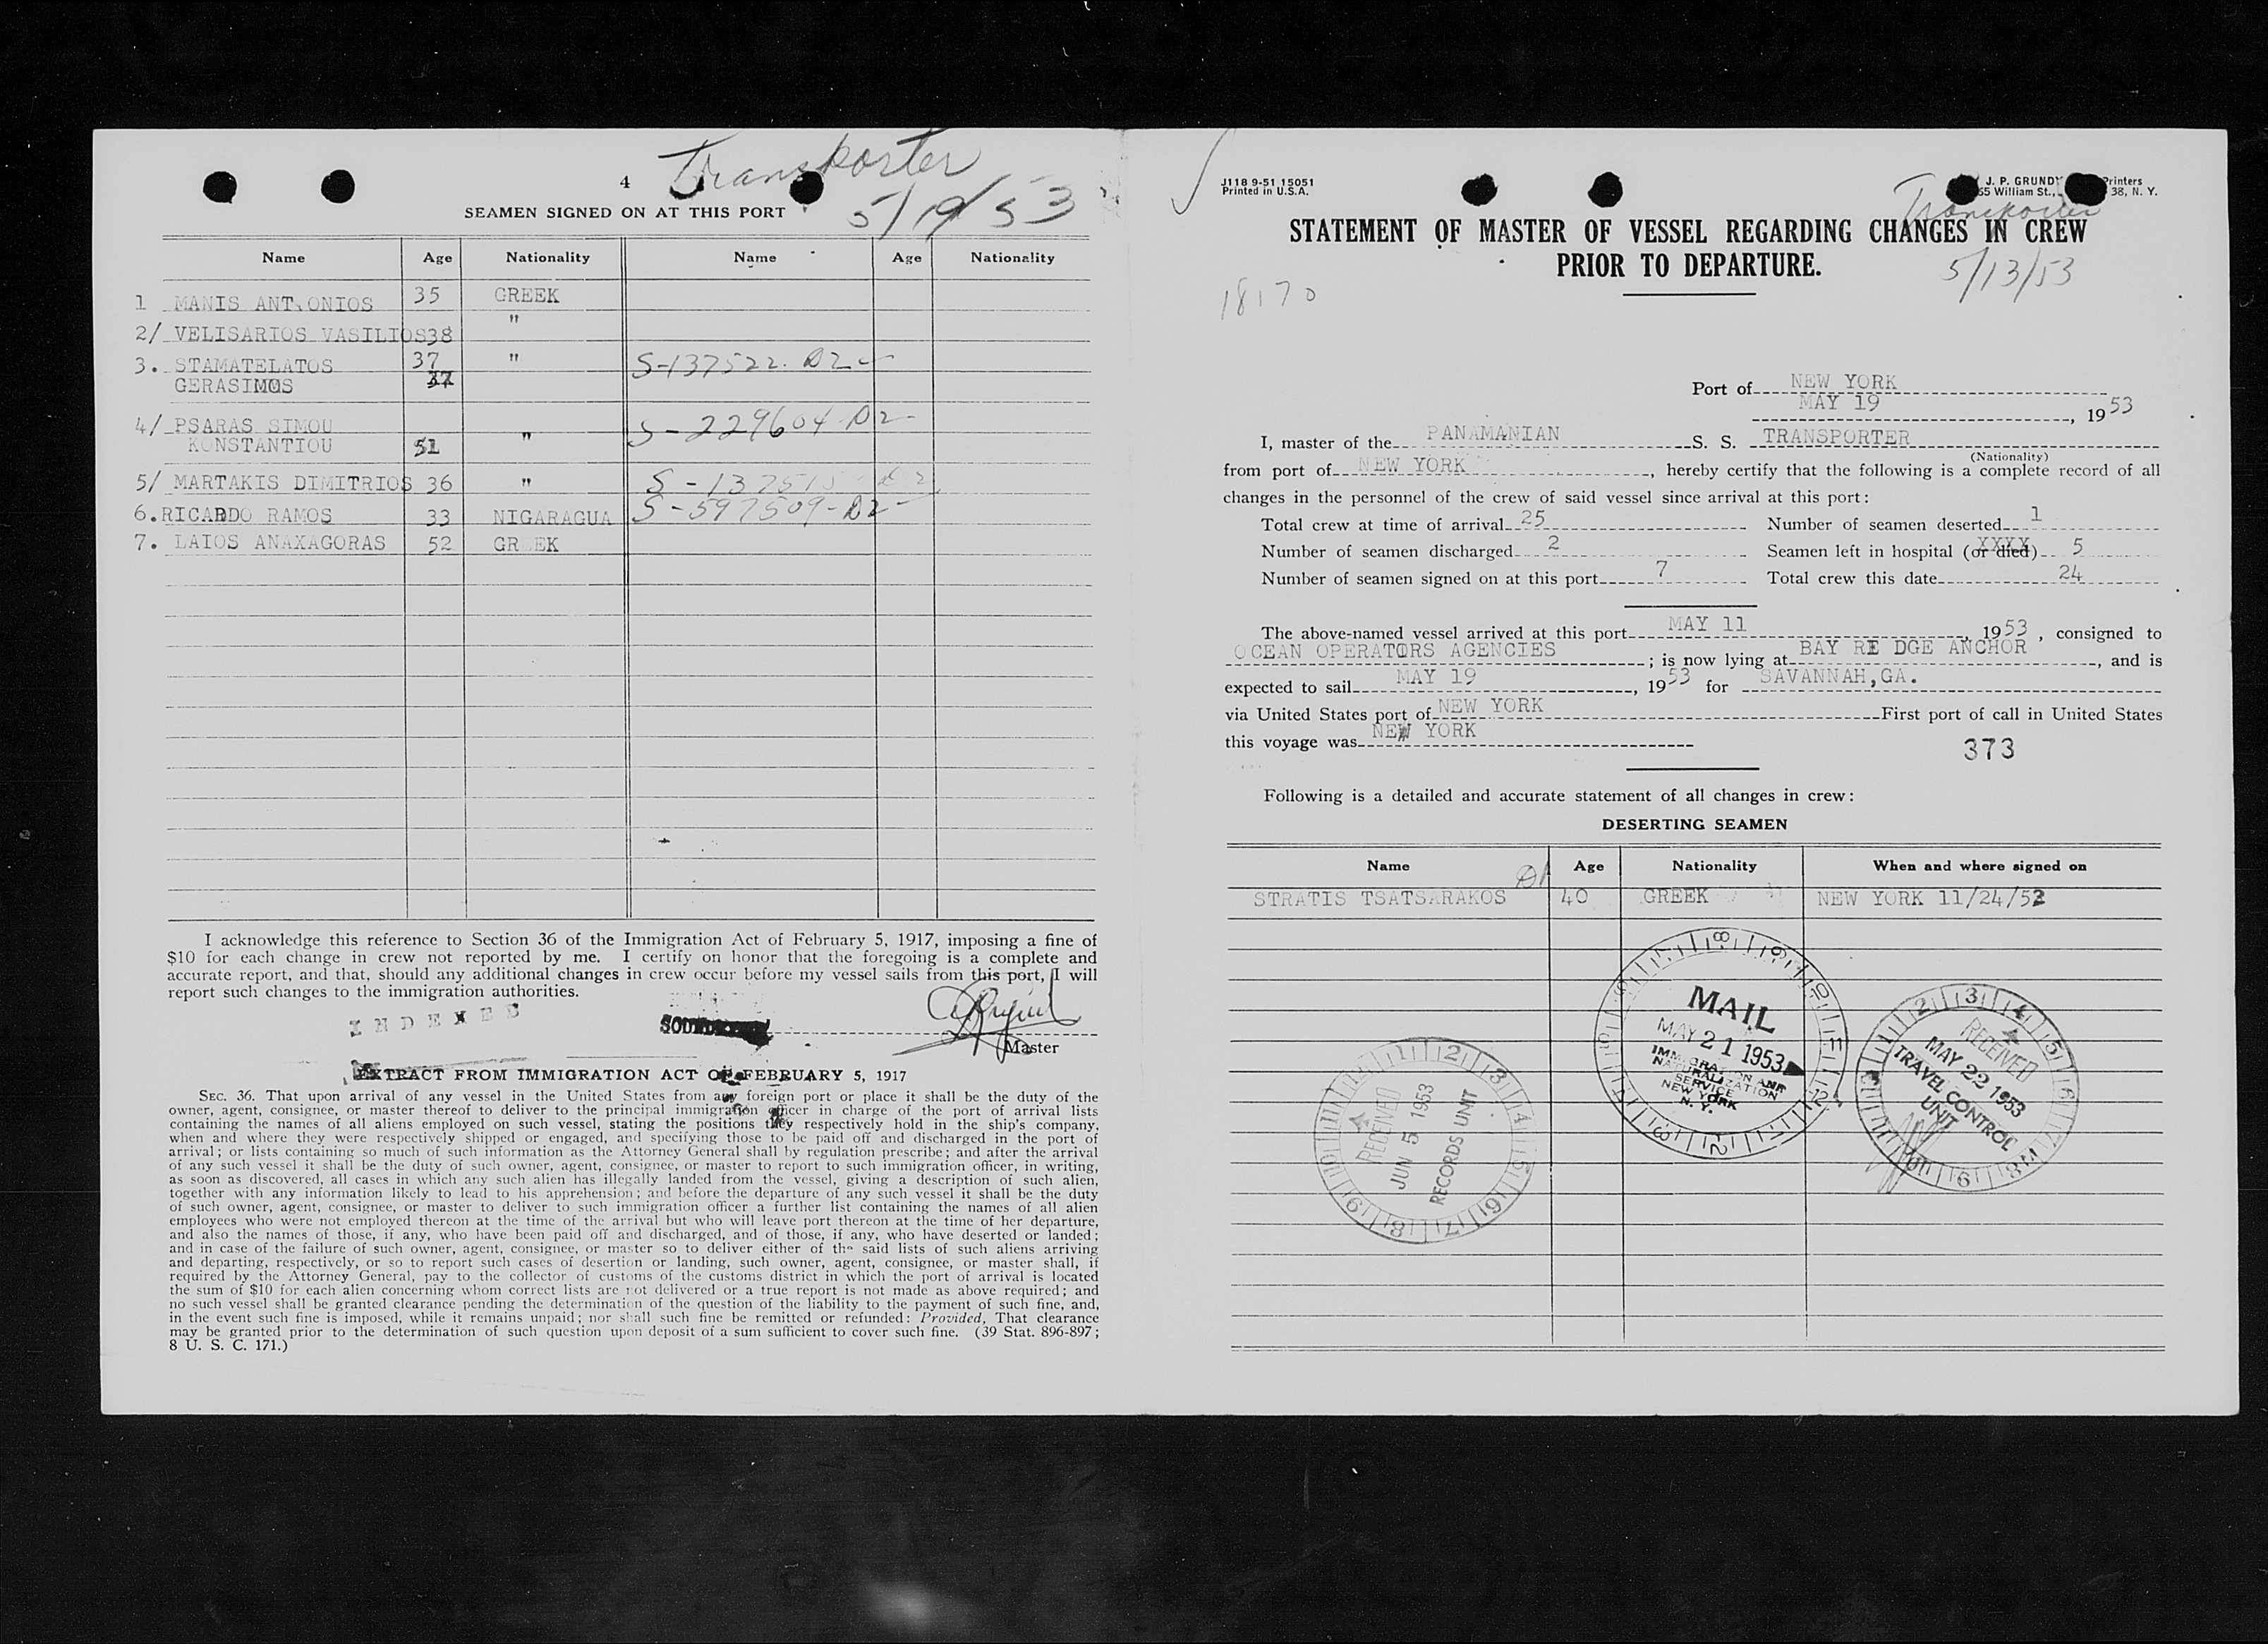 Transporter
4
5/19/53
SEAMEN SIGNED ON AT THIS PORT
Name Age Nationality Name Age Nationality
1 MANIS ANTONIOS 35 GREEK
2/ VELISARIOS VASILIOS 38 "
3. STAMATELATOS 37 " S-137522. D2
GERASIMOS 37
4/ PSARAS SIMOU S-229604-D2-
KONSTANTIOU 51 "
5/ MARTAKIS DIMITRIOS 36 "
6. RICARDO RAMOS 33 NIGARAGUA S-597509-D2-
7. LAIOS ANAXAGORAS 52 GR EK
I acknowledge this reference to Section 36 of the Immigration Act of February 5, 1917, imposing a fine of
$10 for each change in crew not reported by me. I certify on honor that the foregoing is a complete and
accurate report, and that, should any additional changes in crew occur before my vessel sails from this port, I will
report such changes to the immigration authorities.
INDEXED
Master
EXTRACT FROM IMMIGRATION ACT OF FEBRUARY 5, 1917
SEC. 36. That upon arrival of any vessel in the United States from any foreign port or place it shall be the duty of the
owner, agent, consignee, or master thereof to deliver to the principal immigration officer in charge of the port of arrival lists
containing the names of all aliens employed on such vessel, stating the positions they respectively hold in the ship's company,
when and where they were respectively shipped or engaged, and specifying those to be paid off and discharged in the port of
arrival; or lists containing so much of such information as the Attorney General shall by regulation prescribe; and after the arrival
of any such vessel it shall be the duty of such owner, agent, consignee, or master to report to such immigration officer, in writing,
as soon as discovered, all cases in which any such alien has illegally landed from the vessel, giving a description of such alien,
together with any information likely to lead to his apprehension; and before the departure of any such vessel it shall be the duty
of such owner, agent, consignee, or master to deliver to such immigration officer a further list containing the names of all alien
employees who were not employed thereon at the time of the arrival but who will leave port thereon at the time of her departure,
and also the names of those, if any, who have been paid off and discharged, and of those, if any, who have deserted or landed;
and in case of the failure of such owner, agent, consignee, or master so to deliver either of the said lists of such aliens arriving
and departing, respectively, or so to report such cases of desertion or landing, such owner, agent, consignee, or master shall, if
required by the Attorney General, pay to the collector of customs of the customs district in which the port of arrival is located
the sum of $10 for each alien concerning whom correct lists are not delivered or a true report is not made as above required; and
no such vessel shall be granted clearance pending the determination of the question of the liability to the payment of such fine, and,
in the event such fine is imposed, while it remains unpaid; nor shall such fine be remitted or refunded: Provided, That clearance
may be granted prior to the determination of such question upon deposit of a sum sufficient to cover such fine. (39 Stat. 896-897;
8 U. S. C. 171.)
J118 9-51 15051
Printed in U.S.A.
J. P. GRUNDY Printers
55 William St., 38, N. Y.
Transporter
STATEMENT OF MASTER OF VESSEL REGARDING CHANGES IN CREW
PRIOR TO DEPARTURE.
5/13/53
18170
Port of NEW YORK
MAY 19, 1953
I, master of the PANAMANIAN S. S. TRANSPORTER
(Nationality)
from port of NEW YORK, hereby certify that the following is a complete record of all
changes in the personnel of the crew of said vessel since arrival at this port:
Total crew at time of arrival 25 Number of seamen deserted 1
Number of seamen discharged 2 Seamen left in hospital (or died) XXXX 5
Number of seamen signed on at this port 7 Total crew this date 24
The above-named vessel arrived at this port MAY 11, 1953, consigned to
OCEAN OPERATORS AGENCIES; is now lying at BAY RE DGE ANCHOR, and is
expected to sail MAY 19, 1953 for SAVANNAH,GA.
via United States port of NEW YORK First port of call in United States
this voyage was NEW YORK
373
Following is a detailed and accurate statement of all changes in crew:
DESERTING SEAMEN
Name Age Nationality When and where signed on
STRATIS TSATSARAKOS 40 GREEK NEW YORK 11/24/52
MAIL
MAY 21 1953
IMMIGRATION AND
NATURALIZATION
SERVICE
NEW YORK
N. Y.
RECEIVED
MAY 22 1953
TRAVEL CONTROL
UNIT
RECEIVED
JUN 5 1953
RECORDS UNIT